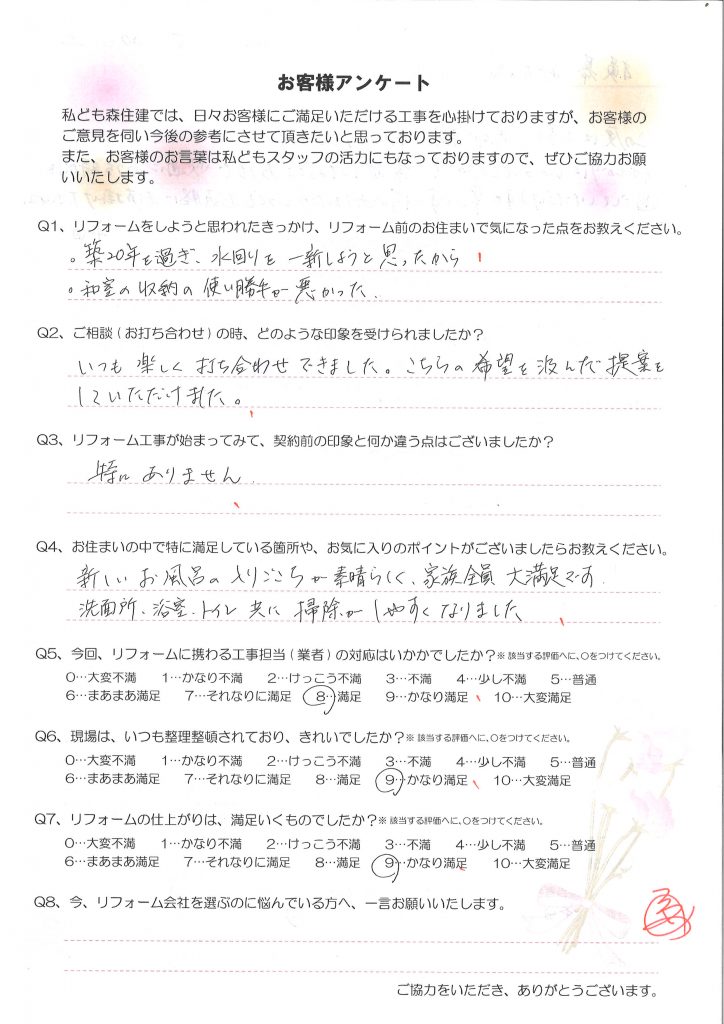 お客様アンケート
私ども森住建では、日々お客様にご満足いただける工事を心掛けておりますが、お客様の
ご意見を伺い今後の参考にさせて頂きたいと思っております。
また、お客様のお言葉は私どもスタッフの活力にもなっておりますので、ぜひご協力お願
いいたします。
Q1、リフォームをしようと思われたきっかけ、リフォーム前のお住まいで気になった点をお教えください。
。築20年を過ぎ、水回りを一新しようと思ったから
。和室の収納の使い勝手が悪かった.
Q2、ご相談(お打ち合わせ)の時、どのような印象を受けられましたか?
いつも楽しく打ち合わせできました。こちらの希望を汲んだ提案を
していただけました。
Q3、リフォーム工事が始まってみて、契約前の印象と何か違う点はございましたか?
特にありません.
Q4、お住まいの中で特に満足している箇所や、お気に入りのポイントがございましたらお教えください。
新しいお風呂の入りごこちが素晴らしく、家族全員大満足です.
洗面所、浴室、トイレ共に掃除がしやすくなりました
Q5、今回、リフォームに携わる工事担当(業者)の対応はいかかでしたか?※該当する評価へに、○をつけてください。
0…大変不満 1…かなり不満 2…けっこう不満 3…不満 4…少し不満 5…普通
6…まあまあ満足 7…それなりに満足 8…満足 9…かなり満足 10…大変満足
Q6、現場は、いつも整理整頓されており、きれいでしたか?※該当する評価へに、○をつけてください。
0…大変不満 1…かなり不満 2…けっこう不満 3…不満 4…少し不満 5…普通
6…まあまあ満足 7…それなりに満足 8…満足 9…かなり満足 10…大変満足
Q7、リフォームの仕上がりは、満足いくものでしたか?※該当する評価へに、○をつけてください。
0…大変不満 1…かなり不満 2…けっこう不満 3…不満 4…少し不満 5…普通
6…まあまあ満足 7…それなりに満足 8…満足 9…かなり満足 10…大変満足
Q8、今、リフォーム会社を選ぶのに悩んでいる方へ、一言お願いいたします。
ご協力をいただき、ありがとうございます。